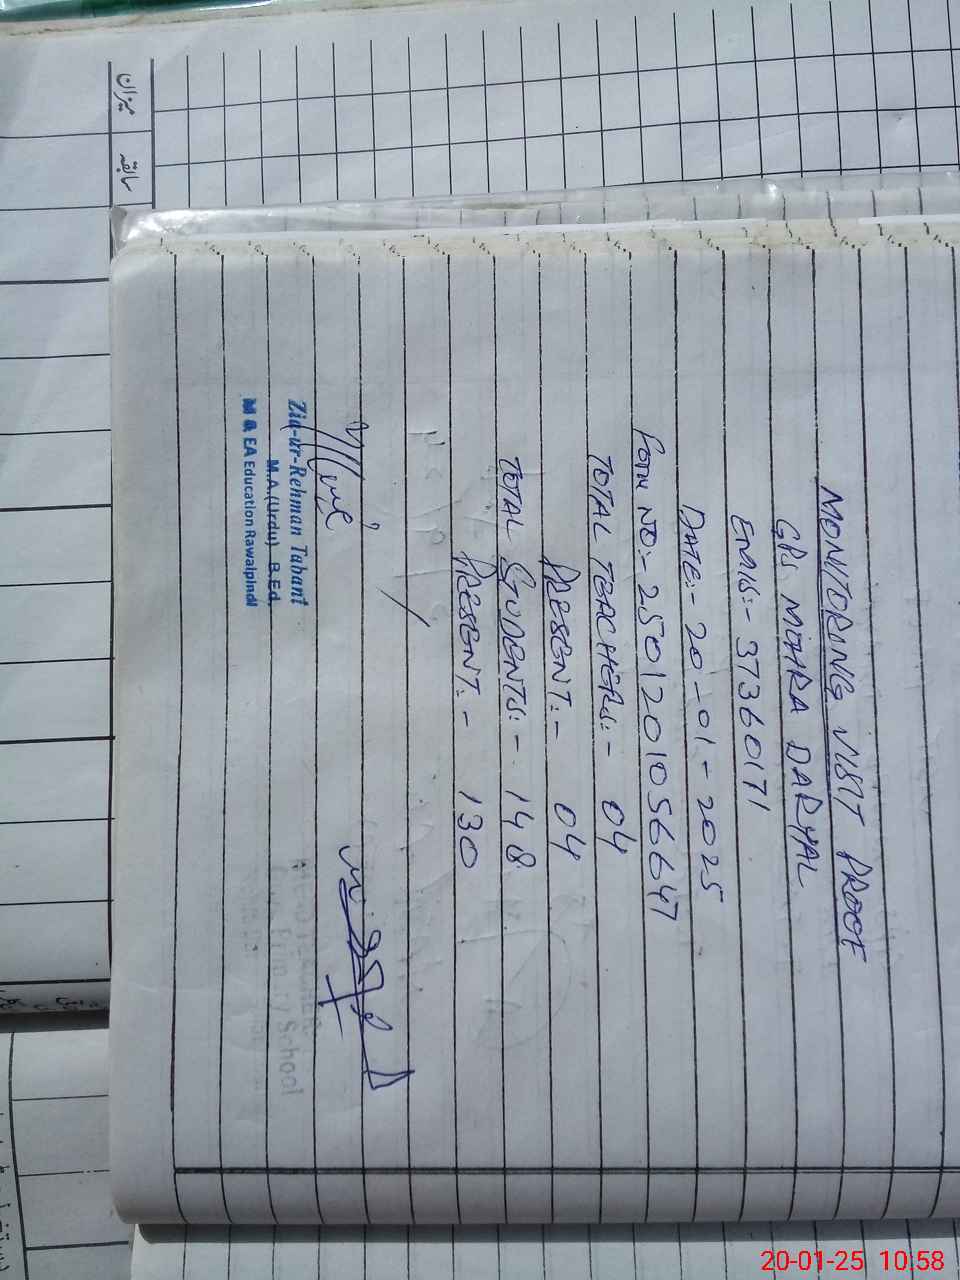 MONITORING VISIT PROOF
GPS MOHRA DARYAL
EMIS:- 37360171
DATE:- 20-01-2025
FORM NO:- 2501201056647
TOTAL TEACHERS:- 04
PRESENT:- 04
TOTAL STUDENTS:- 148
PRESENT:- 130
Zia-ur-Rehman Tabani
M.A.(Urdu) B.Ed.
M & EA Education Rawalpindi
School
میزان
سابقہ
20-01-25 10:58